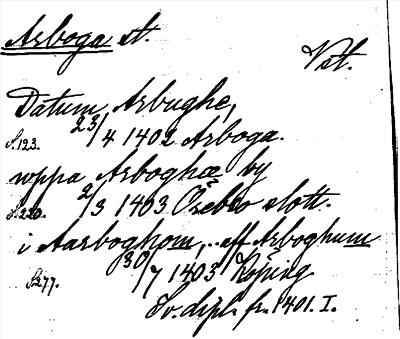 Arboga st.
Vstl.
Datum Arbughe,
S. 123. 23/4 1402 Arboga.
uppa Arboghæ by
S. 220. 2/3 1403 Örebro slott.
i Aarboghom, .. aff Arboghum
S. 277. 30/7 1403 Köping
Sv. dipl. fr. 1401. I.